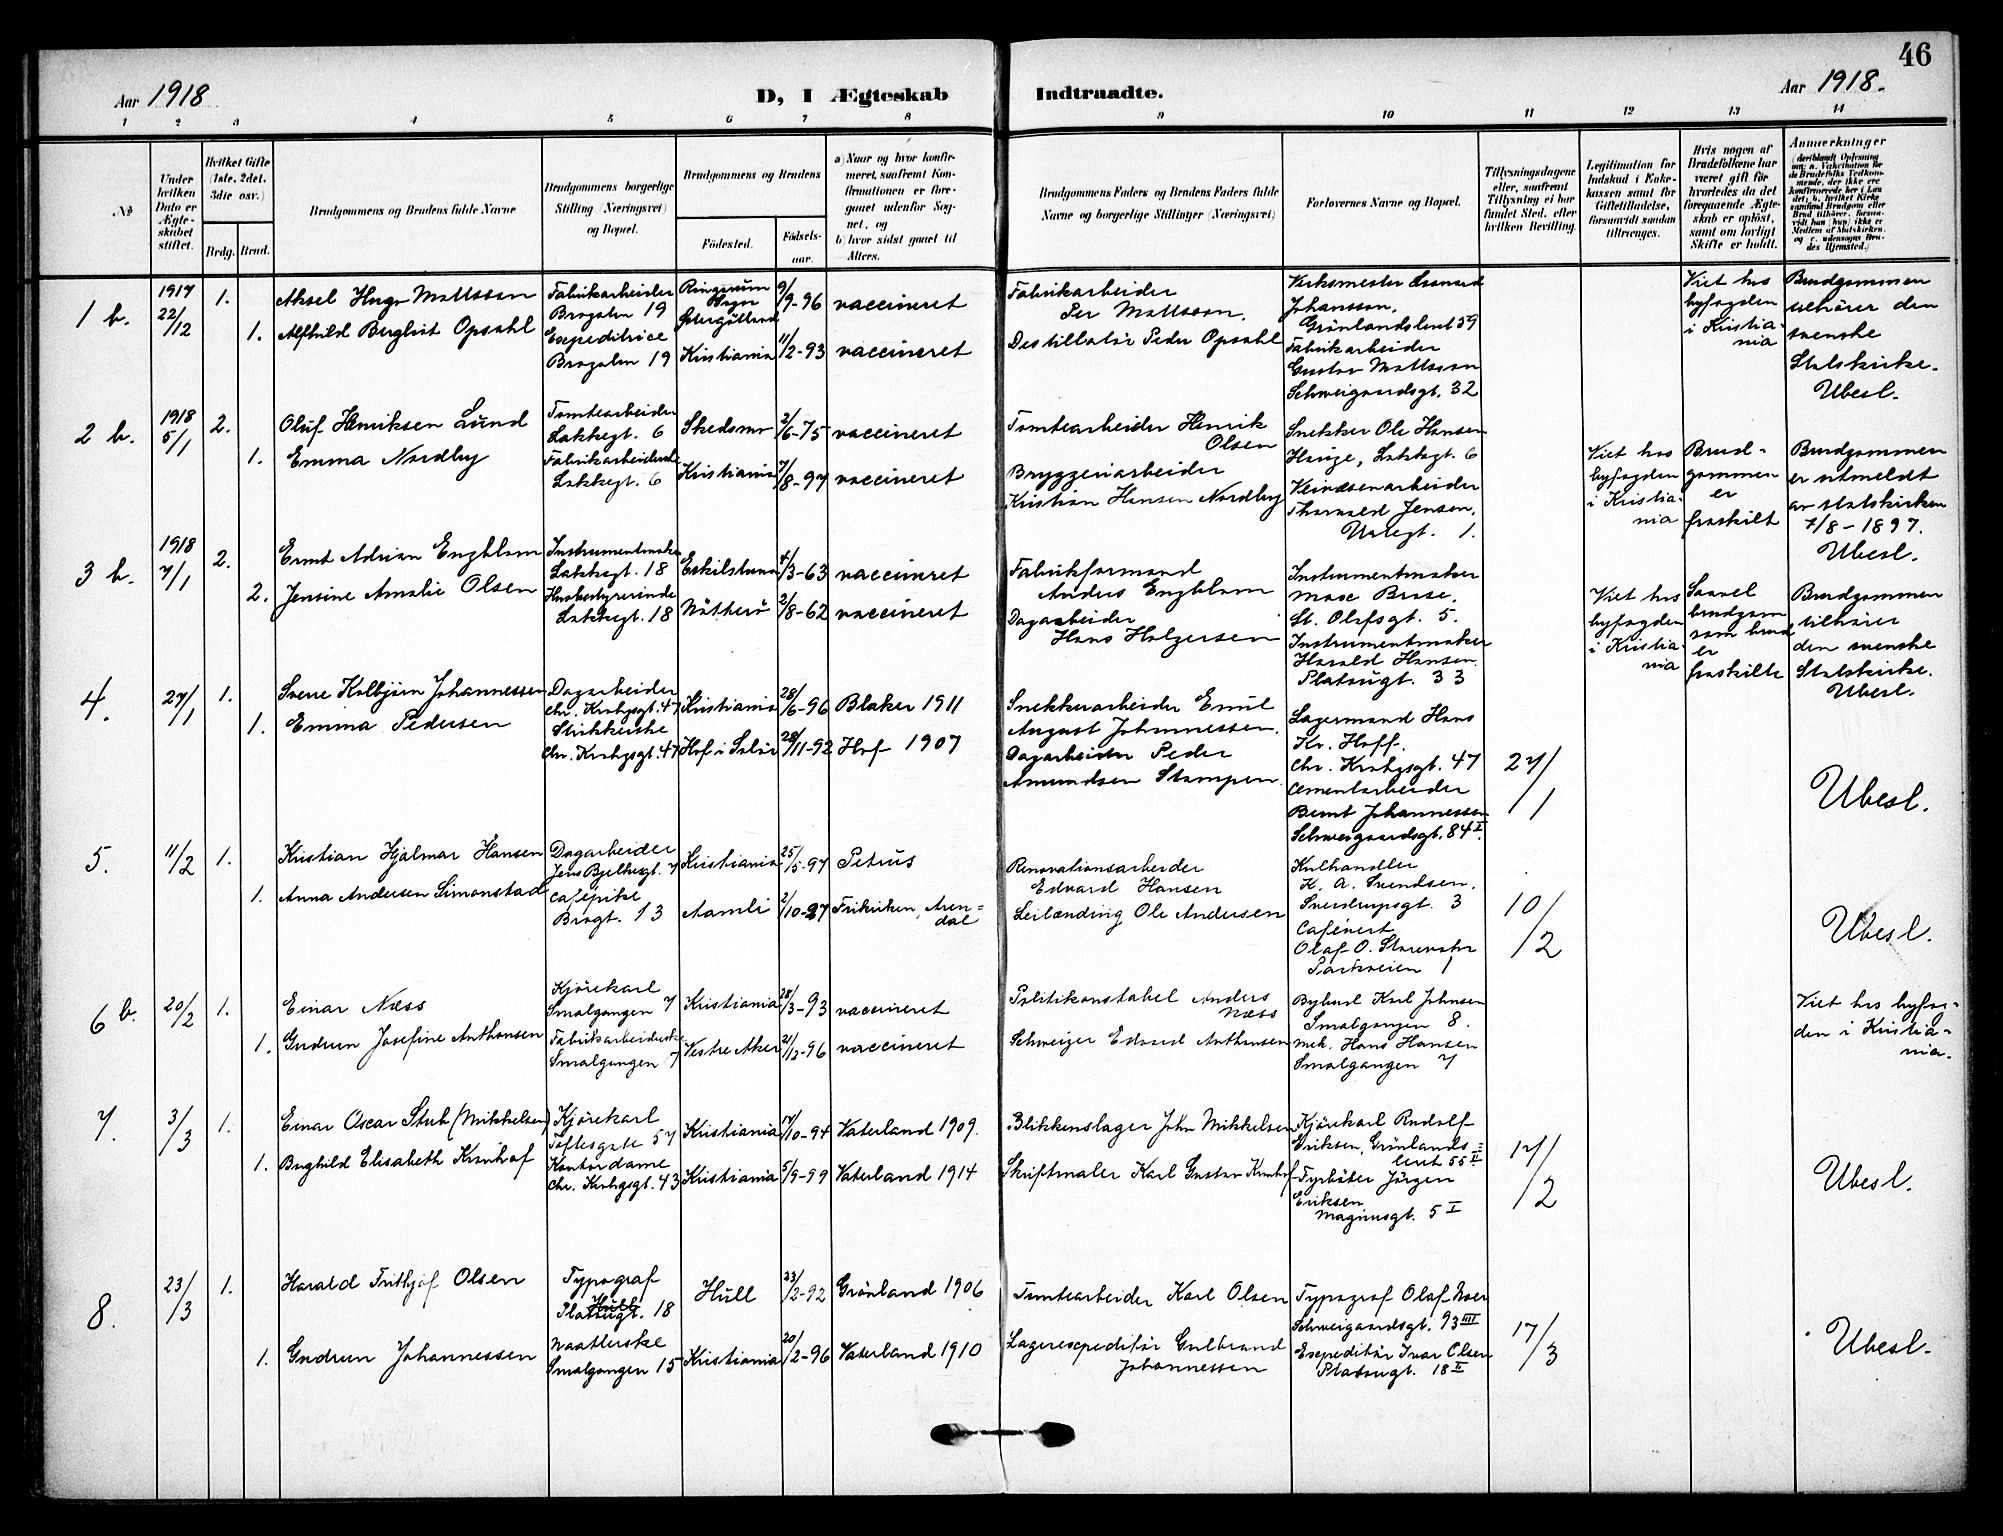 46
Aar 1918
D, I Ægteskab Indtraadte.
Aar 1918.
1 2 3 4 5 6 7 8 9 10 11 12 13 14
No.
Under hvilken Dato er Ægteskabet stiftet.
Hvilket Gifte (1ste, 2det, 3die osv.)
Brdg. Brud.
Brudgommens og Brudens fulde Navne
Brudgommens borgerlige Stilling (Næringsvei) og Bopæl.
Brudgommens og Brudens
Födested. Födsels-aar.
a) Naar og hvor konfirmeret, samt om Konfirmationen er foregaaet udenfor Sognet, og
b) hvor sidst gaaet til Alters.
Brudgommens Faders og Brudens Faders fulde Navne og borgerlige Stillinger (Næringsvei)
Forlovernes Navne og Bopæl.
Tillysningsdagene eller, saafremt Tillysning ei har fundet Sted, efter hvilken Bevilling.
Legitimation for Indskud i Enkekassen samt for Giftetilladelse, forsaavidt saadan tiltrænges.
Hvis nogen af Brudefolkene har været gift før hvorledes da det foregaaende Ægteskab er opløst, samt om lovligt Skifte er holdt.
Anmærkninger
1 b.
1917 22/12
1.
Aksel Hugo Mattsson
Fabrikarbeider
Brogaten 19
9/9-96
vaccineret
Fabrikarbeider
Per Mattsson.
Verksmester
Johansson,
Grønlandsleret 39
1. Alfhild Berglist Opsahl
Expeditrice
Brogaten 19
Kristiania
11/2-93
vaccineret
Destillatör Peder Opsahl
Fabrikarbeider
Gustav Mattsson
Schweigaardsgt. 32
Viet hos
byfogden
i Kristia-
nia
Brudgommen
tilhører den
svenske
Statskirke.
Ubesl.
2 b.
1918 5/1
2.
Oluf Henriksen Lund
Tomtearbeider
Lakkegt. 6
Skedsmo
2/6-75
vaccineret
Tomtearbeider Henrik
Olsen
Snekker Ole Hansen
Hauge, Lakkegt. 6
1. Emma Nordby
Fabrikarbeiderske
Lakkegt. 6
Kristiania
7/8-97
vaccineret
Bryggeriarbeider
Kristian Hansen Nordby
Veivæsenarbeider
Thorvald Jensen,
Urtegt. 1.
Viet hos
byfogden
i Kristia-
nia
Brud-
gommen
er
fraskilt
Brudgommen
er utmeldt
av statskirken
7/8-1897.
Ubesl.
3 b.
1918 7/1
2.
Ernst Adrian Engblom
Instrumentmaker
Lakkegt. 18
Eskilstuna
4/3-63
vaccineret
Fabrikformand
Anders Engblom
Instrumentmaker
St. Olafsgt. 5.
2. Jensine Amalie Olsen
Husbestyrerinde
Lakkegt. 18
Nötterö
2/8-62
vaccineret
Dagarbeider
Hans Holgersen
Instrumentmaker
Harald Hansen
Platousgt. 33
Viet hos
byfogden
i Kristia-
nia
Saavel
brudgom
som brud
er
fraskilte
Brudgommen
tilhører
den svenske
Statskirke.
Ubesl.
4.
27/1
1.
Sverre Kolbjørn Johannessen
Dagarbeider
Chr. Krohgsgt. 47
Kristiania
28/6-96
Blaker 1911
Snekkerarbeider Emil
August Johannessen.
Lagermand Hans
Kr. Hoff.
Chr. Krohgsgt. 47
1. Emma Pedersen
Chr. Krohgsgt. 47
Hof i Solør
28/11-92
Hof 1907
Dagarbeider Peder
Amundsen Stampen
Cementarbeider
Bernt Johannessen
Schweigaardsgt. 84 I.
27/1
Ubesl.
5.
11/2
1.
Kristian Hjalmar Hansen
Dagarbeider
Jens Bjelkesgt. 7
Kristiania
25/5-97
Petrus
Renovationsarbeider
Edvard Hansen
Kulhandler
K. A. Svendsen.
Sverdrupsgt. 3
1. Anna Andersen Simonstad
Cafépike
Brogt. 13
Aamli
Frikirken, Aren=
dal
Leilænding Ole Andersen
Cafévert
Parkveien 1
10/2
Ubesl.
6 b.
20/2
1.
Einar Næss
Kjörekarl
Smalgangen 7
Kristiania
28/3-93
vaccineret
Politikonstabel Anders
Næss
Bybud Karl Johnsen
Smalgangen 8.
1. Gudrun Josefine Anthonsen
Fabrikarbeiderske
Smalgangen 7
Vestre Aker
21/12-96
vaccineret
Schweizer Edvard Anthonsen
mek. Hans Hansen
Smalgangen 7
Viet hos byfog-
den i Kristia-
nia.
7.
3/3
1.
Einar Oscar Stub (Mikkelsen)
Kjörekarl
Toftesgate 57
Kristiania
17/10-94
Vaterland 1909.
Blikkenslager John Mikkelsen
Kjörekarl Rudolf
Eriksen, Grönlands=
leret 55 II
1. Borghild Elisabeth Kronhof
Kontordame
Chr. Krohgsgt. 43
Kristiania
5/9-99
Vaterland 1914
Skriftmaler Karl Gustav Kronhof
Fyrböter Jörgen
Eriksen
Magnusgt. 5 I
17/2
Ubesl.
8.
23/3
1.
Harald Frithjof Olsen
Typograf
Platousgt. 18
Hull
23/2-92
Grönland 1906
Tomtearbeider Karl Olsen
Typograf Olaf Moer
Schweigaardsgt. 93 III
1. Gudrun Johannessen
Smalgangen 15
Kristiania
20/2-96
Vaterland 1910
Lagerexpeditör Gulbrand
Johannessen
Expeditör Ivar Olsen
Platousgt. 18 II
17/3
Ubesl.